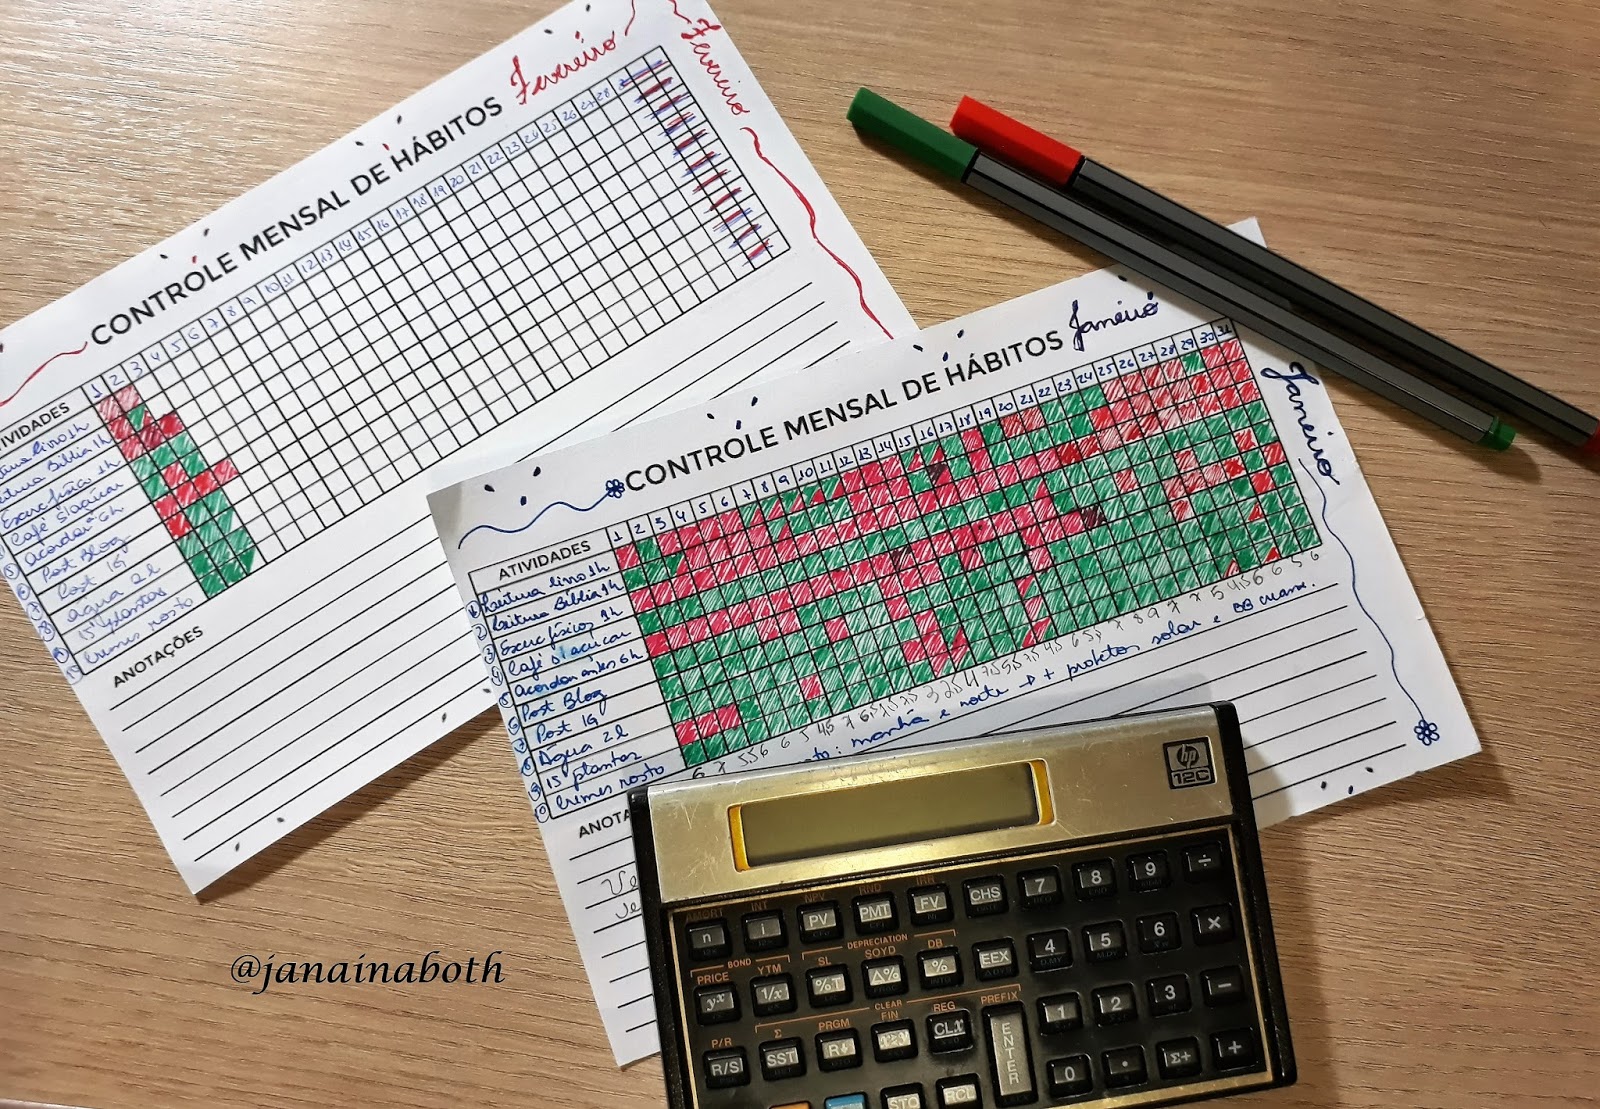 CONTROLE MENSAL DE HÁBITOS Fevereiro
Fevereiro
1 2 3 4 5 6 7 8 9 10 11 12 13 14 15 16 17 18 19 20 21 22 23 24 25 26 27 28
IVIDADES
Leitura livro 1h
Leitura Bíblia 1h
Exerc físico 1h
Café s/açúcar
Acordar 6h
Post Blog
Post IG
Água 2l
15' plantas
Cremes rosto
ANOTAÇÕES
CONTROLE MENSAL DE HÁBITOS Janeiro
Janeiro
ATIVIDADES 1 2 3 4 5 6 7 8 9 10 11 12 13 14 15 16 17 18 19 20 21 22 23 24 25 26 27 28 29 30 31
1 Leitura livro 1h
2 Leitura Bíblia 1h
3 Exerc físicos 1h
4 Café s/açúcar
5 Acordar antes 6h
6 Post Blog
7 Post IG
8 Água 2l
9 15 plantas
10 Cremes rosto
manhã e noite → + protetor solar e BB creame.
ANOTA
@janainaboth
hp
12C
AMORT INT NPV RND IRR
n i PV PMT FV CHS 7 8 9 ÷
BOND DEPRECIATION
PRICE YTM SL SOYD DB
yˣ 1/x %T Δ% % EEX 4 5 6 ×
CLEAR
P/R Σ PRGM FIN REG PREFIX
R/S SST R↓ x≷y CLx ENTER 1 2 3 −
STO RCL 0 · Σ+ +